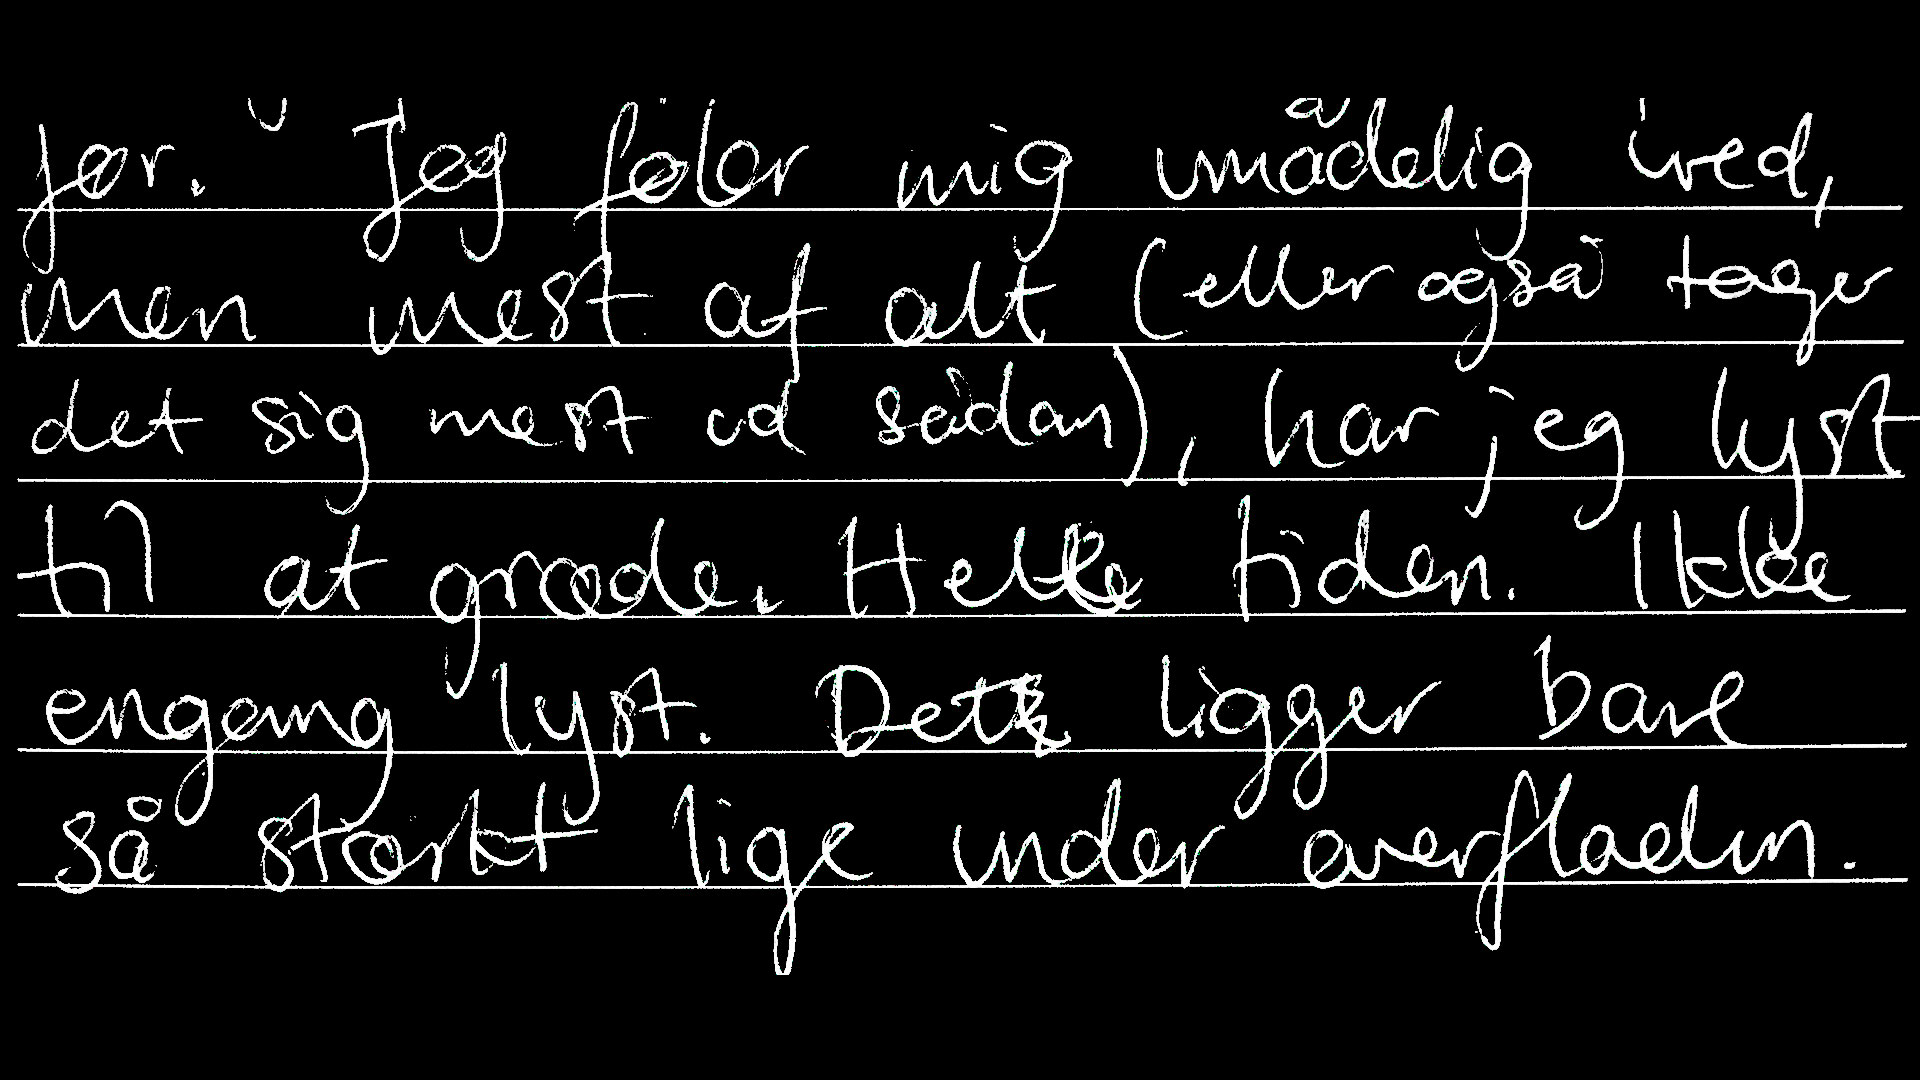 før. Jeg føler mig umådelig vred,
men mest af alt (eller også tager
det sig mest ud sådan), har jeg lyst
til at græde. Hele tiden. Ikke
engang lyst. Det ligger bare
så stærkt lige under overfladen.